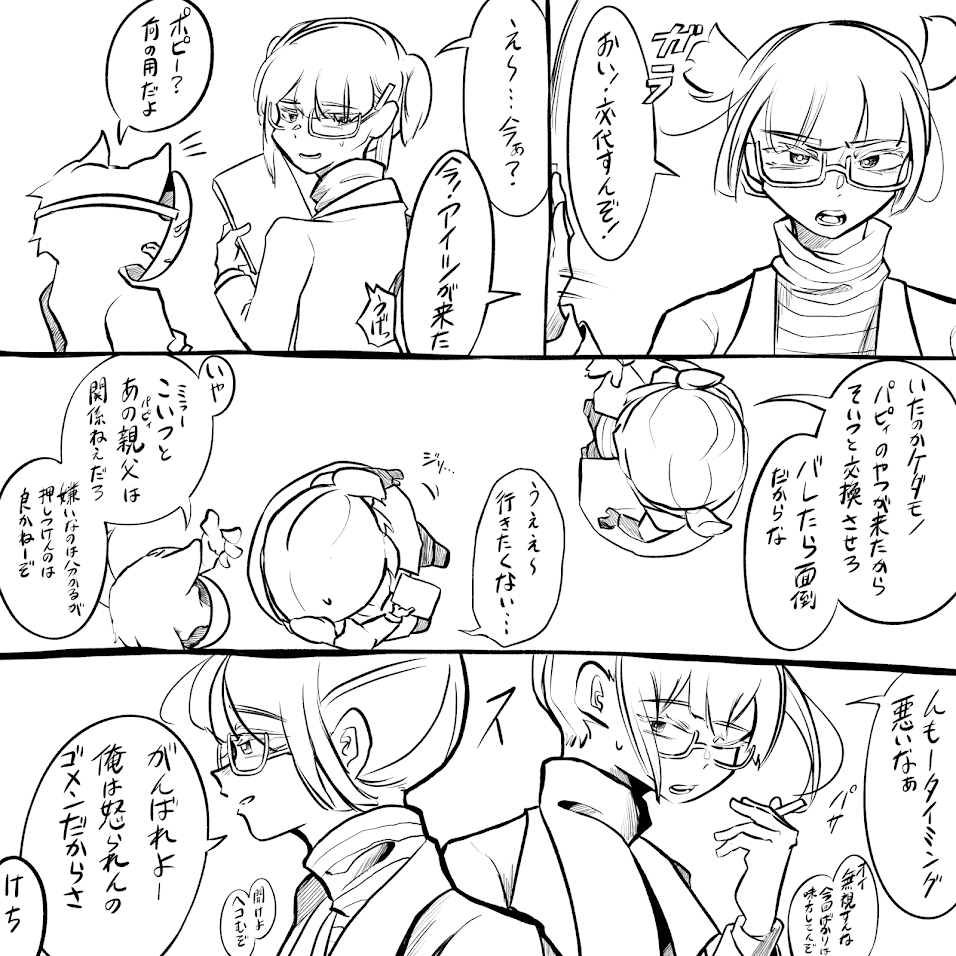 ガラ
おい!交代すんぞ!
え〜…今ぁ?
今!アイツが来た
うげっ
ポピー?
何の用だよ
いたのかケダモノ
パピィのヤツが来たから
そいつと交換させろ
バレたら面倒
だからな
うええ〜
行きたくない…
ジリ…
いや
こいつと
ミラー
あの親父は
パピィ
関係ねえだろ
嫌いなのは分かるが
押しつけんのは
良かねーぞ
んもータイミング
悪いなぁ
パサ
オイ
無視すんな
今回ばかりは
味方してんぞ
スイ
がんばれよー
俺は怒られんの
ゴメンだからさ
聞けよ
ヘコむぞ
けち